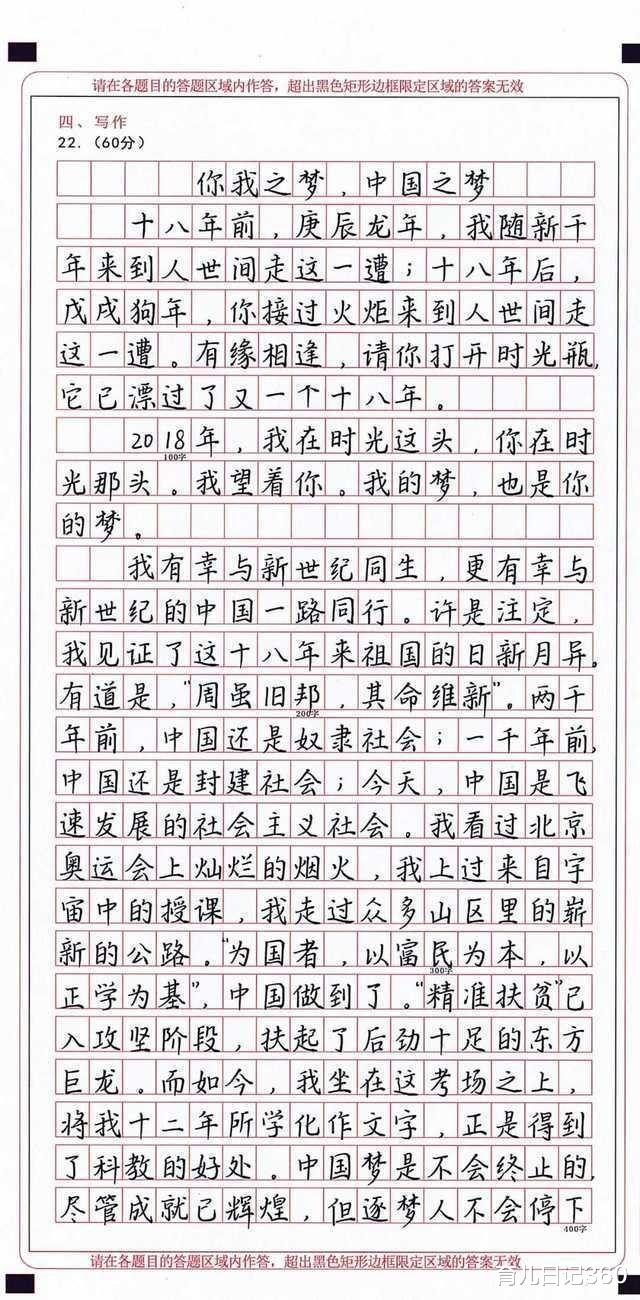 请在各题目的答题区域内作答，超出黑色矩形边框限定区域的答案无效
四、写作
22.（60分）
你我之梦，中国之梦
十八年前，庚辰龙年，我随新千
年来到人世间走这一遭；十八年后，
戊戌狗年，你接过火炬来到人世间走
这一遭。有缘相逢，请你打开时光瓶，
它已漂过了又一个十八年。
2018年，我在时光这头，你在时
100字
光那头。我望着你。我的梦，也是你
的梦。
我有幸与新世纪同生，更有幸与
新世纪的中国一路同行。许是注定，
我见证了这十八年来祖国的日新月异。
有道是，“周虽旧邦，其命维新”。两千
200字
年前，中国还是奴隶社会；一千年前，
中国还是封建社会；今天，中国是飞
速发展的社会主义社会。我看过北京
奥运会上灿烂的烟火，我上过来自宇
宙中的授课，我走过众多山区里的崭
新的公路。“为国者，以富民为本，以
300字
正学为基”，中国做到了。“精准扶贫”已
入攻坚阶段，扶起了后劲十足的东方
巨龙。而如今，我坐在这考场之上，
将我十二年所学化作文字，正是得到
了科教的好处。中国梦是不会终止的，
尽管成就已辉煌，但逐梦人不会停下
400字
请在各题目的答题区域内作答，超出黑色矩形边框限定区域的答案无效
育儿日记360